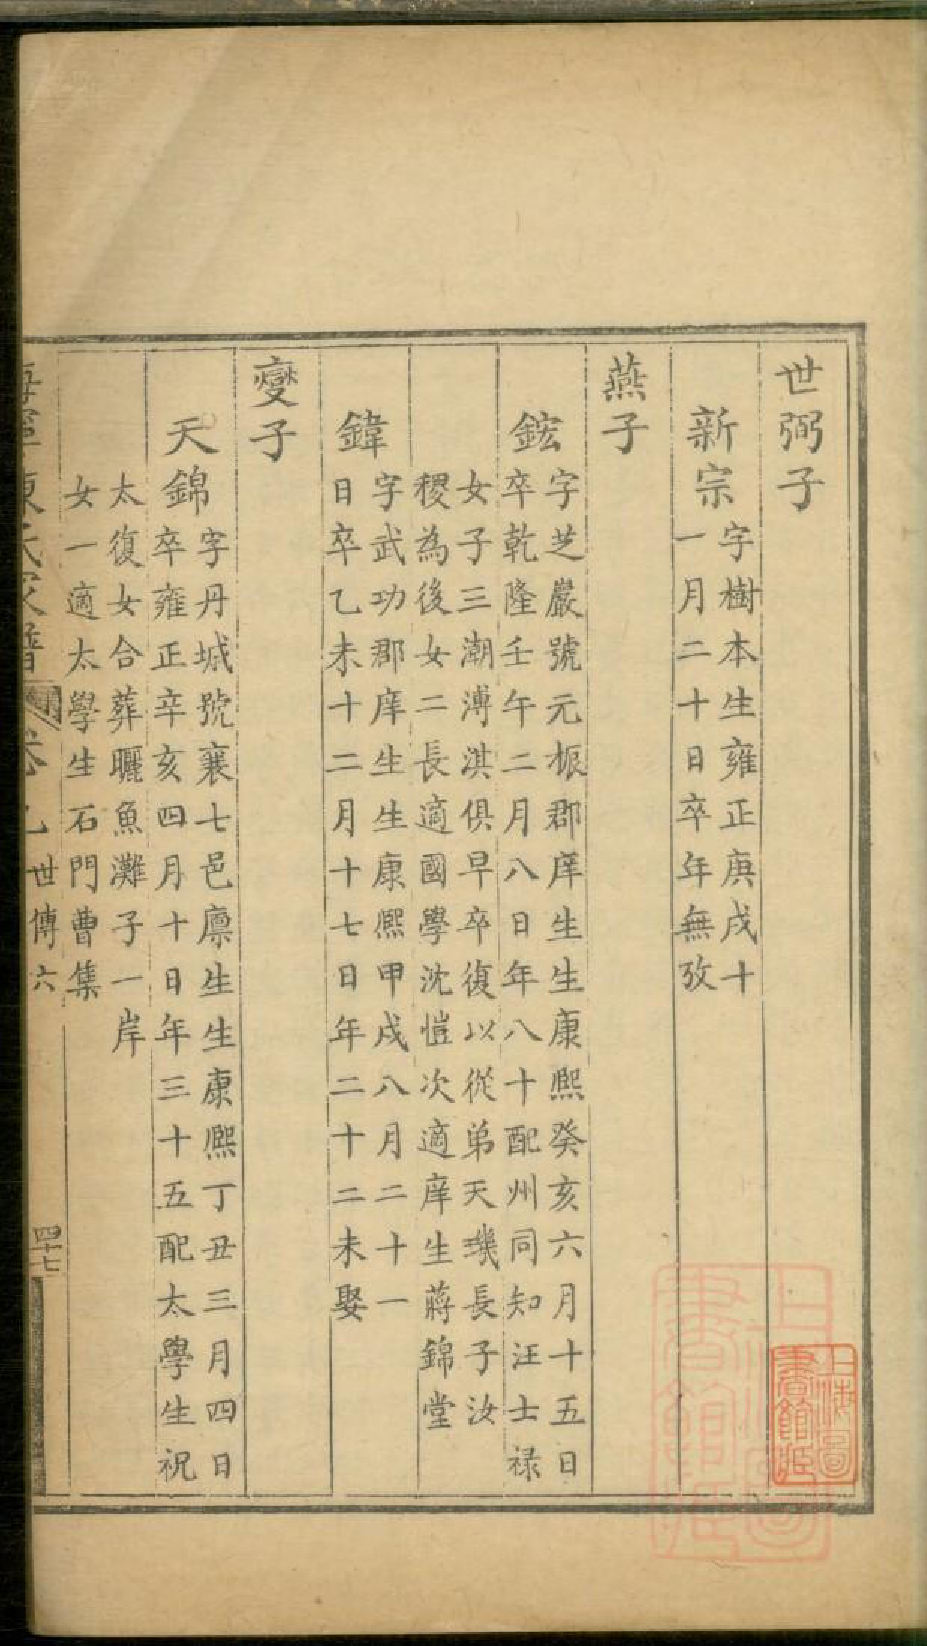 世弼子
新宗
字樹本生雍正庚戌十
一月二十日卒年無攷
燕子
鋐
字芝嚴號元桭郡庠生生康熙癸亥六月十五日
卒乾隆壬午二月八日年八十配州同知汪士禄
女子三潮溥淇俱早卒復以從弟天璣長子汝
稷為後女二長適國學沈愷次適庠生蔣錦堂
鍏
字武功郡庠生生康熙甲戌八月二十一
日卒乙未十二月十七日年二十二未娶
變子
天錦
字丹城號襄七邑廪生生康熙丁丑三月四日
卒雍正辛亥四月十日年三十五配太學生祝
太復女合葬曬魚灘子一岸
女一適太學生石門曹集
世傳六
四十七
上海圖
書館藏